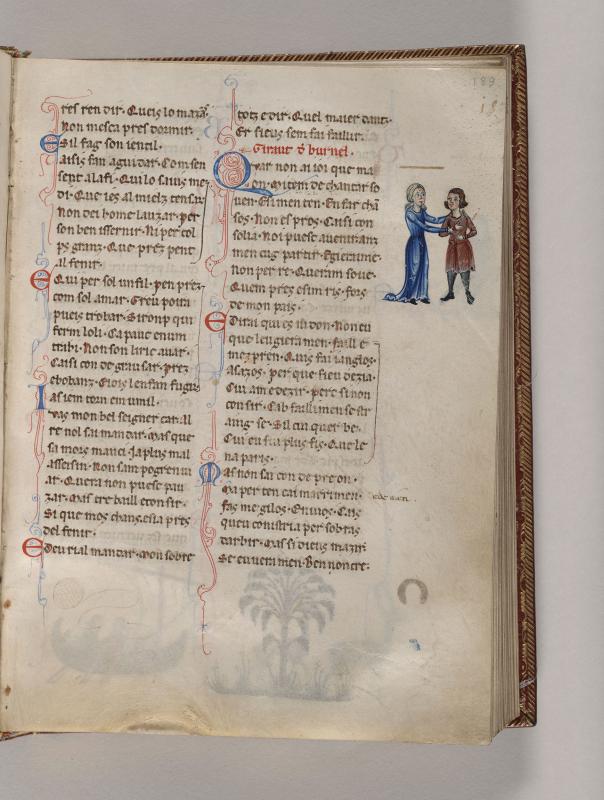 res ren dir. Queis lo maza
Non mesca pres dormir.
Sil fag son ientil.
aisis fan aguidar. Com sen
sept ala fi. Qui lo sauis me
di. Que ies al mielz tensar
Non dei home lauzar. per
son ben issernir. Ni per col
ps granz. Que prez pent
al fenir.
Qui per sol un fil. pen prez
com sol amar. Greu poira
pueis trobar. Si romp qui
ferm loli. Ca pauc enum
trahi. Non son li ric auar.
Caisi con de grau sar. prez
ebobanz. Eiois len fan fugir
as iem com en umil.
vas mon bel seigner car. al
re nol sai mandar. Mas que
sa mors manci. Ia plus mal
assesin. Non sam pogren ui
ar. Quera non puesc pau
zar. Mas cre baill e consir.
Si que mos chans. esta pres
del fenir.
E deu rial mandar. Mon sobre
totz e dir. Quel maier danz.
Er sieus sem fai faillir.
Giraut d burnel.
Er ar non ai ioi que ma
on. Ni tem de chantar so
uen. Ni men ten. En far chā
sos. Non es pros. Caisi con
solia. Noi puesc auenir anz
men cug partir. Egieraime
non per re. Queram soue.
Quem prez esim ris. fors
de mon pais.
E dirai qui es iu don. Non cu
que leugieramen. faill e
mezpren. Quis fai ianglos.
Alazos. per que sieu dezia.
Cui am e dezir. pero si non
consir. Cab faillimen se fir
amig. se. Sil cui quer be.
Cui en fia plus fis. Que le
na paris.
Mas non sai con de pre on.
Na per ten cai marrimen.
fas me gilos. Enuios. Cais
queu consiria per sobras
tarbir. Mas si dieus mazir
Se eu uerimen. Ben non cre.
189